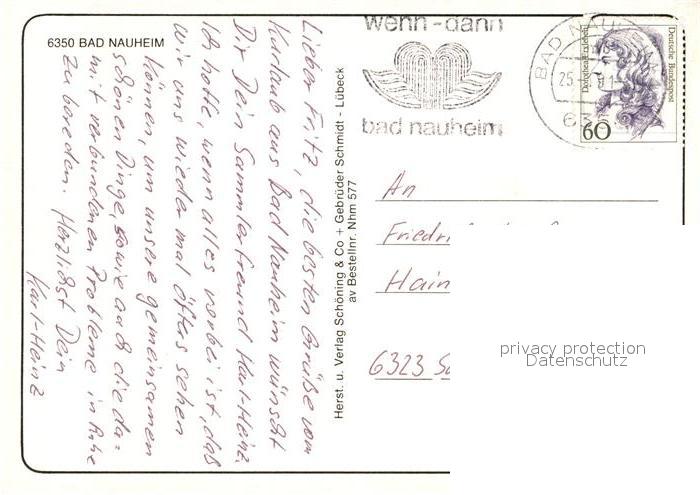 6350 BAD NAUHEIM
Lieber Fritz, die besten Grüße vom
Kurlaub aus Bad Nauheim wünscht
Dir Dein Sammlerfreund Karl-Heinz.
Ich hoffe, wenn alles vorbei ist, daß
wir uns wieder mal öfters sehen
können, um unsere gemeinsamen
schönen Dinge, sowie auch die da-
mit verbundenen Probleme in Ruhe
zu bereden. Herzlichst Dein
Karl-Heinz
Herst. u. Verlag Schöning & Co + Gebrüder Schmidt - Lübeck
av Bestellnr. Nhm 577
wenn-dann
bad nauheim
BAD NAU
25.
Deutsche Bundespost
60
An
Friedri
Hain
6323
privacy protection
Datenschutz